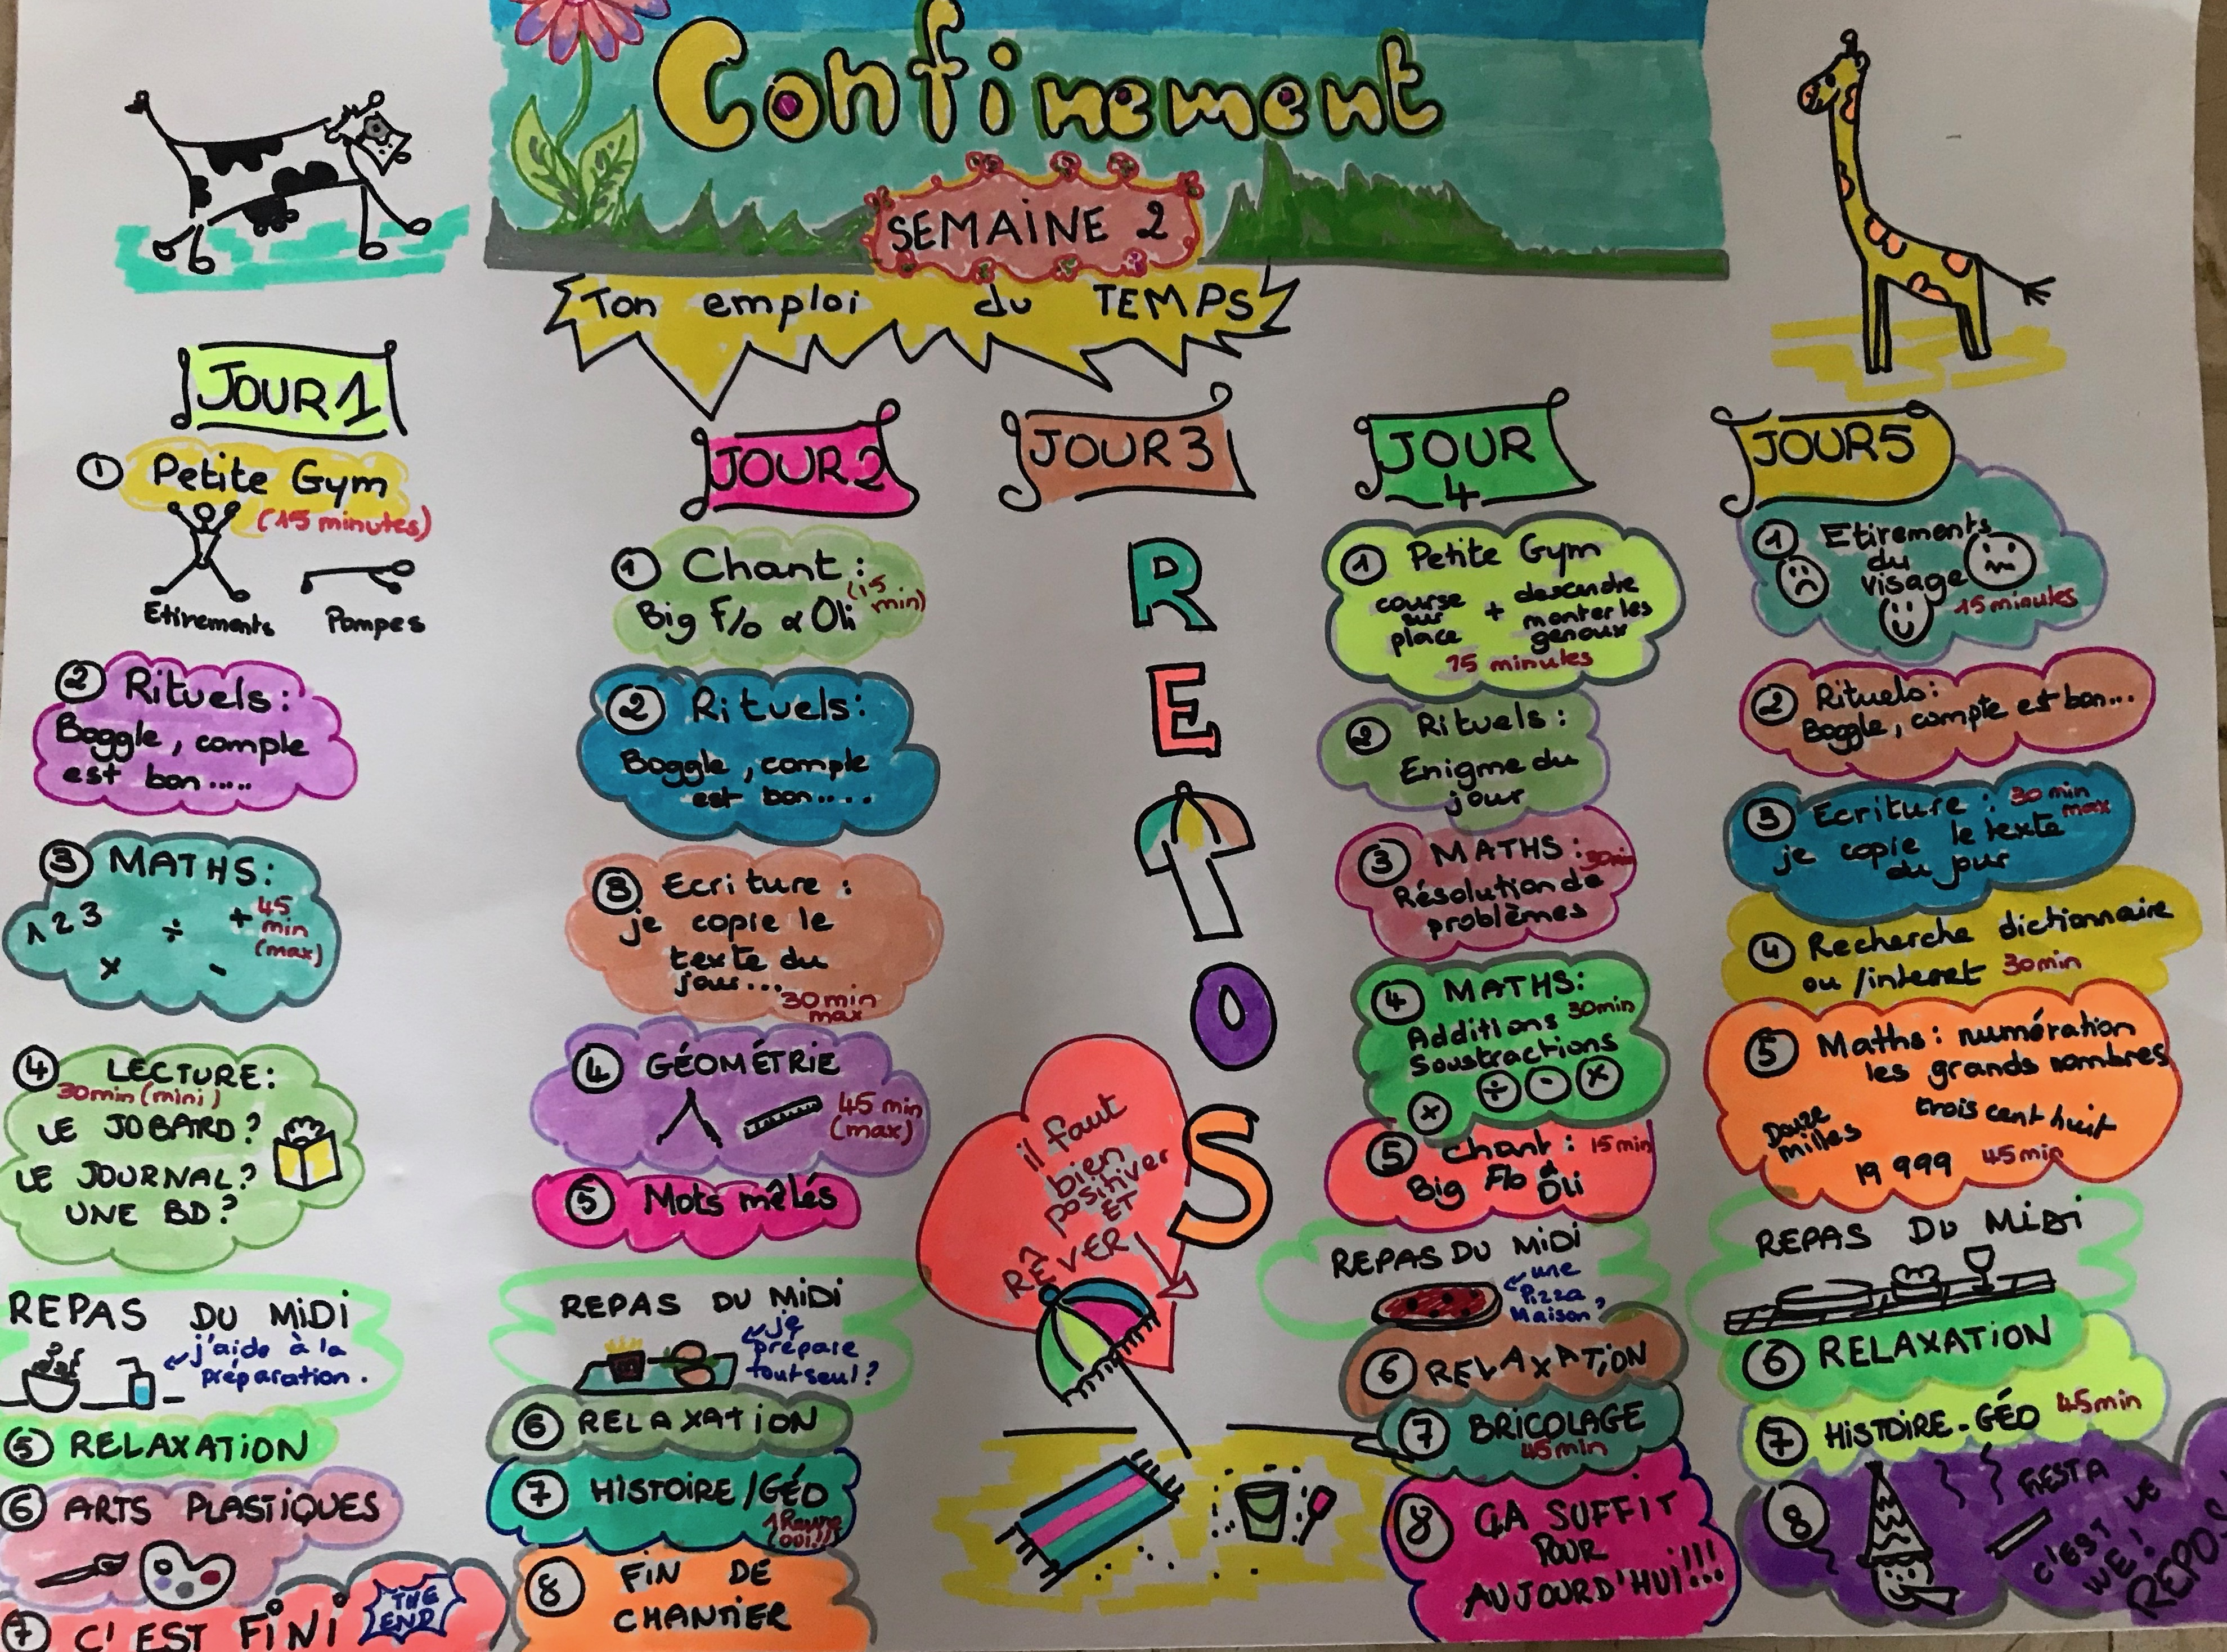 Confinement
SEMAINE 2
Ton emploi du TEMPS
JOUR 1
① Petite Gym
(15 minutes)
Etirements Pompes
② Rituels:
Boggle, compte
est bon.....
③ MATHS:
1 2 3 ÷ + 45
min
(max)
x -
④ LECTURE:
30min (mini)
LE JOBARD?
LE JOURNAL?
UNE BD?
REPAS DU MIDI
j'aide à la
préparation.
⑤ RELAXATION
⑥ ARTS PLASTIQUES
⑦ C'EST FINI
THE
END
JOUR 2
① Chant:
(15
min)
Big Flo & Oli
② Rituels:
Boggle, compte
est bon....
③ Ecriture:
je copie le
texte du
jour...
30min
max
④ GÉOMÉTRIE
45 min
(max)
⑤ Mots mêlés
REPAS DU MIDI
je
prépare
tout seul?
⑥ RELAXATION
⑦ HISTOIRE/GÉO
1 Heure
(OUI!!)
8 FIN DE
CHANTIER
JOUR 3
R
E
P
O
S
il faut
bien
positiver
ET
RÊVER
JOUR
4
① Petite Gym
course
sur
place
+
descendre
monter les
genoux
15 minutes
② Rituels:
Enigme du
jour
③ MATHS: 30min
Résolution de
problèmes
④ MATHS:
Additions 30min
Soustractions
x ÷ - x
⑤ chant: 15min
Big Flo &
Oli
REPAS DU MIDI
une
Pizza
Maison?
⑥ RELAXATION
⑦ BRICOLAGE
45min
8 ÇA SUFFIT
POUR
AUJOURD'HUI!!!
JOUR 5
① Etirements
du
visage
15 minutes
② Rituels:
Boggle, compte est bon...
③ Ecriture: 30 min
max
je copie le texte
du jour
④ Recherche dictionnaire
ou /internet 30min
⑤ Maths: numération
les grands nombres
trois cent huit
Douze
milles
19 999 45min
REPAS DU MIDI
⑥ RELAXATION
⑦ HISTOIRE-GÉO 45min
8 FIESTA
C'EST LE
WE!
REPOS